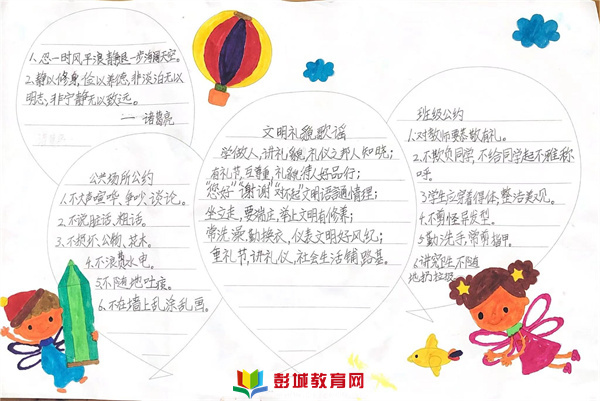 1.忍一时风平浪静退一步海阔天空。
2.静以修身,俭以养德,非淡泊无以
明志,非宁静无以致远。
— 诸葛亮
公共场所公约
1.不大声喧哗、争吵、谈论。
2.不说脏话、粗话。
3.不损坏公物、花木。
4.不浪费水电。
5.不随地吐痰。
6.不在墙上乱涂乱画。
文明礼貌歌谣
学做人,讲礼貌,礼仪之邦人知晓;
有礼节,互尊重,礼貌待人好品行;
"您好""谢谢""对不起"文明语言通情理;
坐立走,要端庄,举止文明有修养;
常洗澡,勤换衣,仪表文明好风纪;
重礼节,讲礼仪,社会生活铺路基。
班级公约
1.对教师要恭敬有礼。
2.不欺负同学,不给同学起不雅称
呼。
3.学生应穿着得体,整洁美观。
4.不剪怪异发型。
5.勤洗手,常剪指甲。
6.讲究卫生不随
地扔垃圾
彭城教育网